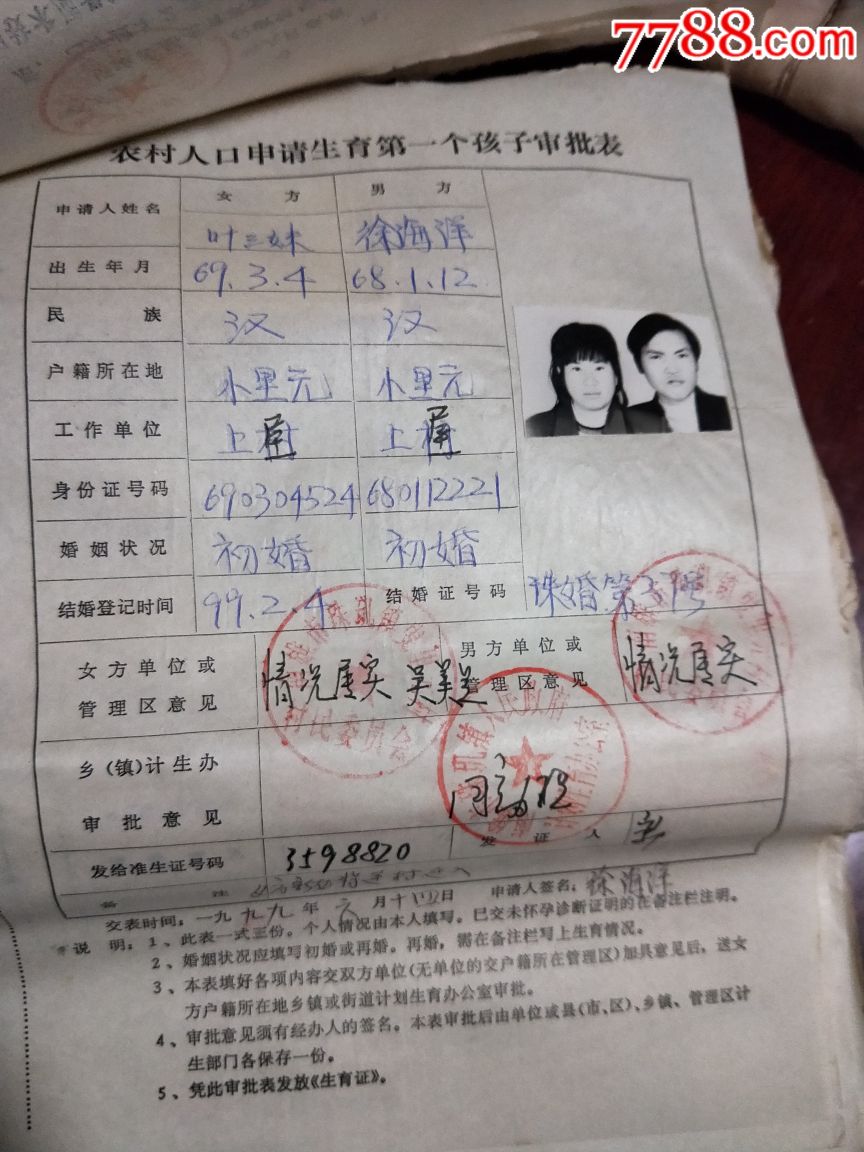 7788.com
农村人口申请生育第一个孩子审批表
申请人姓名 女方 男方
叶三妹 徐海洋
出生年月 69.3.4 68.1.12
民族 汉 汉
户籍所在地 小里元 小里元
工作单位 上 上
身份证号码 690304524 680112221
婚姻状况 初婚 初婚
结婚登记时间 99.2.4 结婚证号码 珠婚第37号
女方单位或管理区意见 情况属实 吴美兰 男方单位或管理区意见 情况属实
村民委员会
镇人民政府
乡(镇)计生办审批意见 同意
发给准生证号码 3598820 发证人
备注
交表时间:一九九九年六月十四日 申请人签名:徐海洋
说明:1、此表一式三份。个人情况由本人填写。已交未怀孕诊断证明的在备注栏注明。
2、婚姻状况应填写初婚或再婚。再婚,需在备注栏写上生育情况。
3、本表填好各项内容交双方单位(无单位的交户籍所在管理区)加具意见后,送女
方户籍所在地乡镇或街道计划生育办公室审批。
4、审批意见须有经办人的签名。本表审批后由单位或县(市、区)、乡镇、管理区计
生部门各保存一份。
5、凭此审批表发放《生育证》。